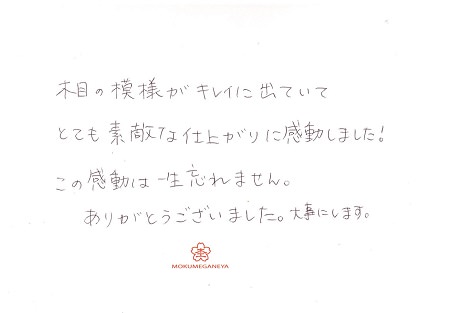 木目の模様がキレイに出ていて
とても素敵な仕上がりに感動しました!
この感動は一生忘れません。
ありがとうございました。大事にします。
MOKUMEGANEYA